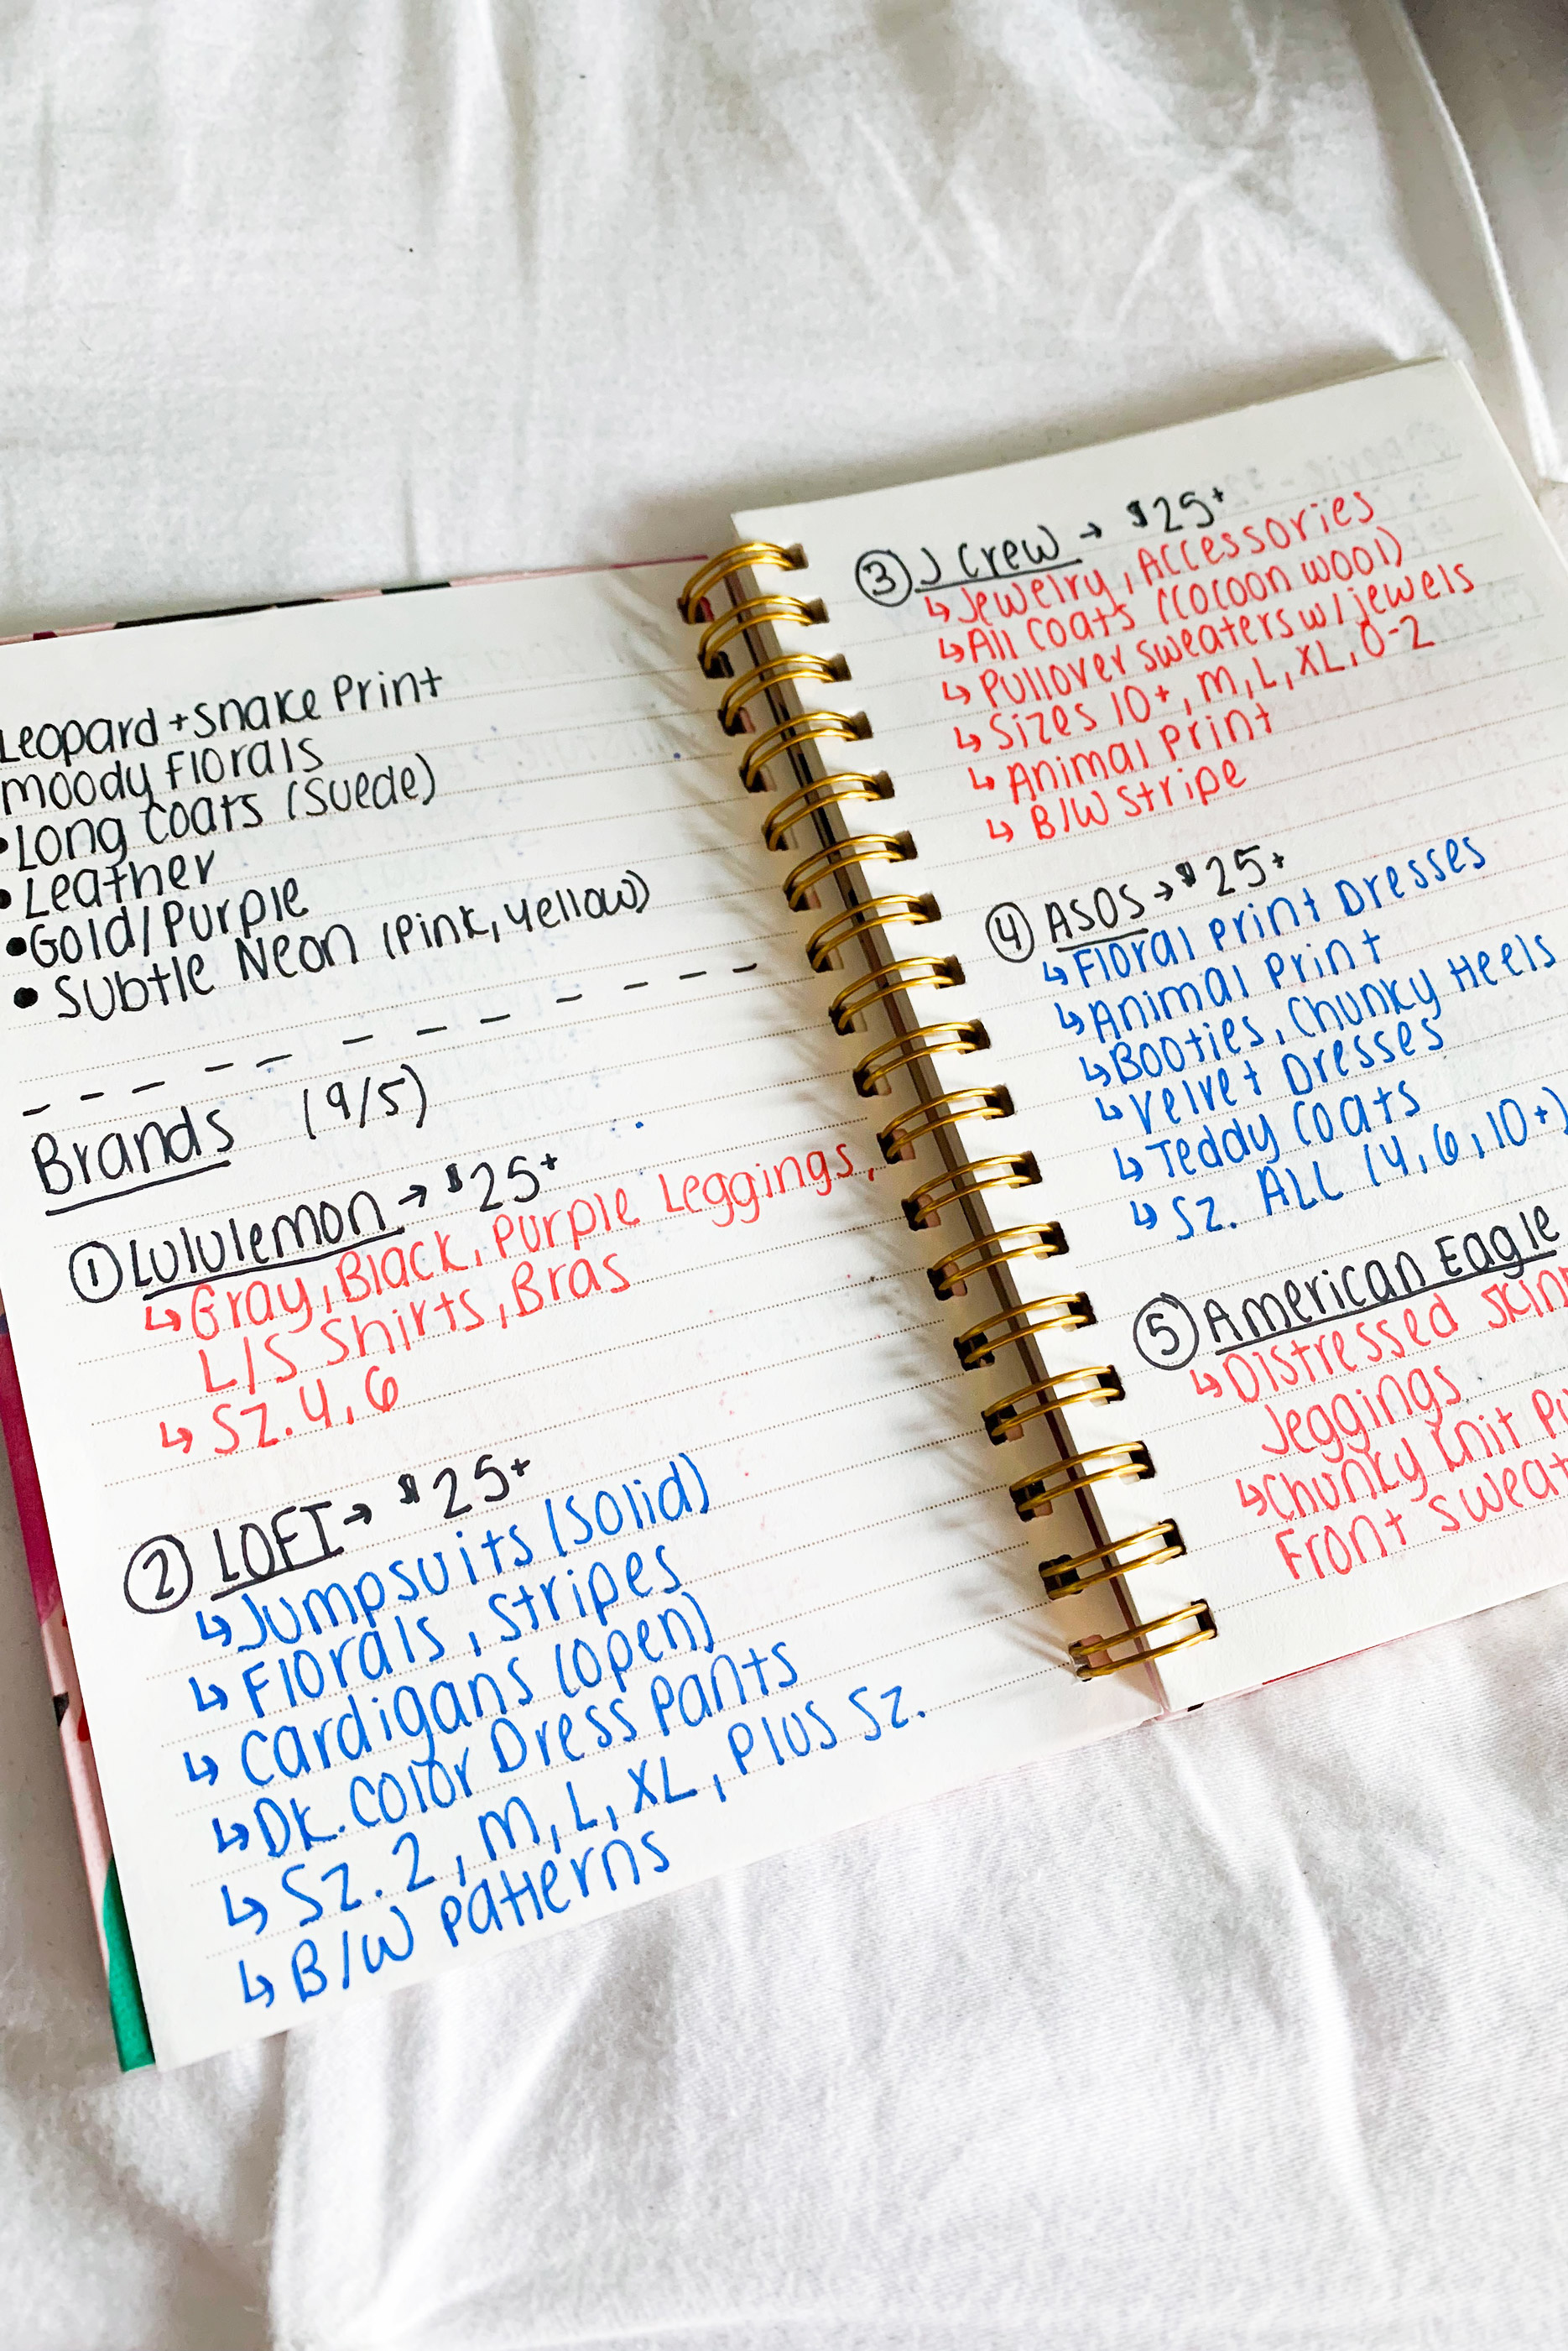 Leopard + Snake Print
Moody Florals
• Long Coats (Suede)
• Leather
• Gold/Purple
• Subtle Neon (Pink, Yellow)
Brands (9/5)
① Lululemon → $25+
↳ Gray, Black, Purple Leggings,
L/S Shirts, Bras
↳ Sz. 4, 6
② LOFT → $25+
↳ Jumpsuits (Solid)
↳ Florals, Stripes
↳ Cardigans (open)
↳ Dk. Color Dress Pants
↳ Sz. 2, M, L, XL, Plus Sz.
↳ B/W Patterns
③ J Crew → $25+
↳ Jewelry, Accessories
↳ All Coats (Cocoon Wool)
↳ Pullover sweaters w/ jewels
↳ Sizes 10+, M, L, XL, 0-2
↳ Animal Print
↳ B/W Stripe
④ ASOS → $25+
↳ Floral Print Dresses
↳ Animal Print
↳ Booties, Chunky Heels
↳ Velvet Dresses
↳ Teddy Coats
↳ Sz. ALL (4, 6, 10+)
⑤ American Eagle
↳ Distressed
Jeggings
↳ Chunky Knit
Front